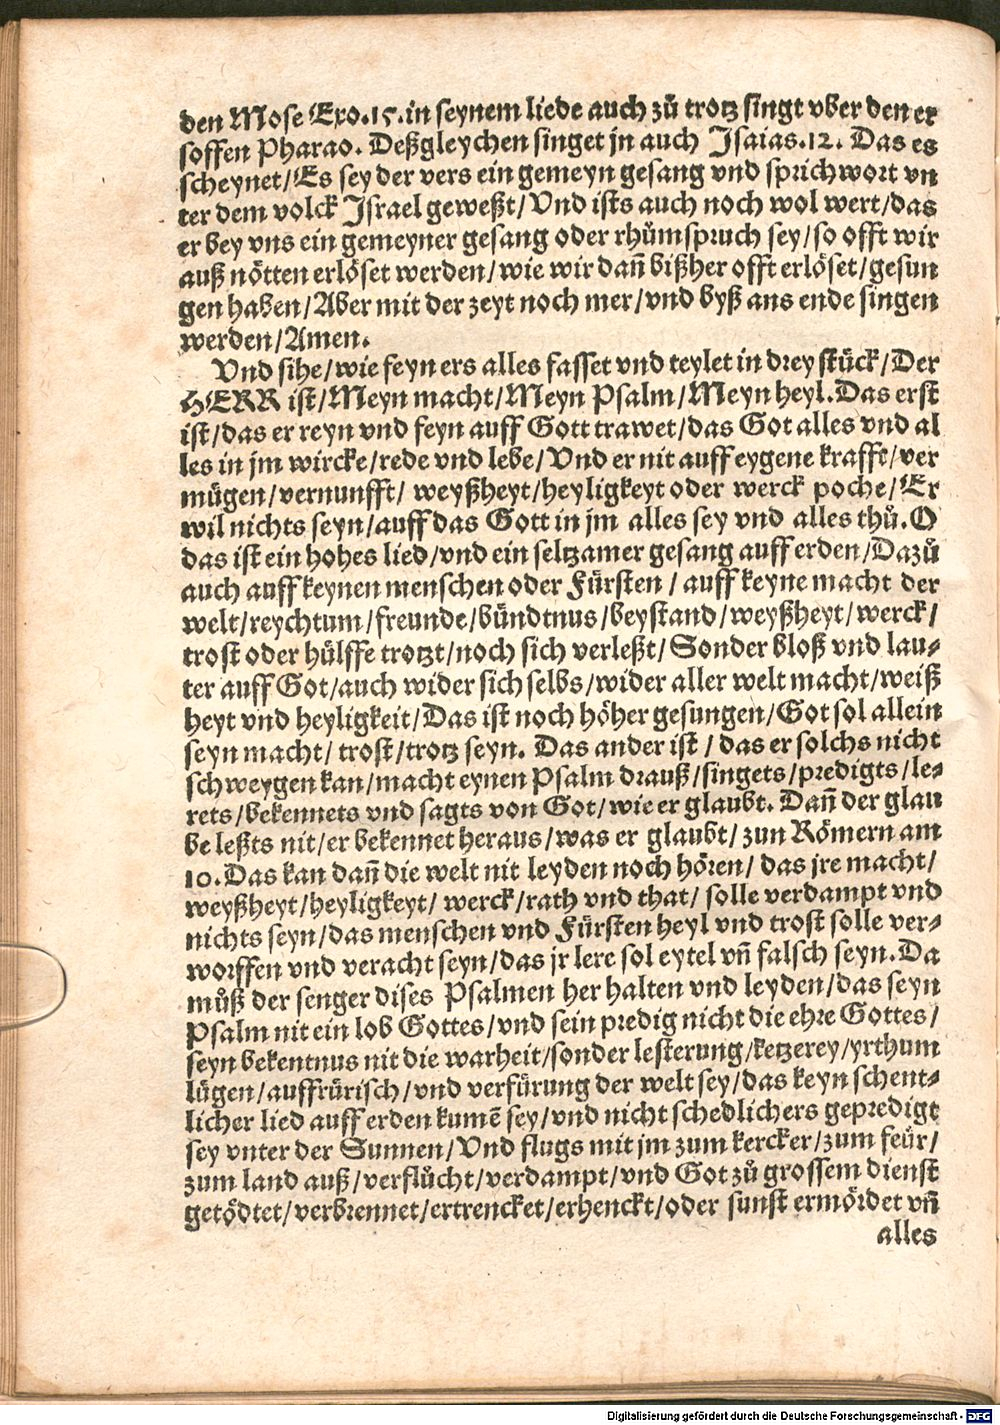 den Mose Exo.15.in seynem liede auch zů trotz singt vber den er
soffen Pharao. Deßgleychen singet jn auch Isaias.12. Das es
scheynet/Es sey der vers ein gemeyn gesang vnd sprichwort vn
ter dem volck Israel geweßt/Vnd ists auch noch wol wert/das
er bey vns ein gemeyner gesang oder rhůmspruch sey/so offt wir
auß nötten erlöset werden/wie wir dañ bißher offt erlöset/gesun
gen haben/Aber mit der zeyt noch mer/vnd byß ans ende singen
werden/Amen.
Vnd sihe/wie feyn ers alles fasset vnd teylet in drey stück/Der
HERR ist/Meyn macht/Meyn Psalm/Meyn heyl.Das erst
ist/das er reyn vnd feyn auff Gott trawet/das Got alles vnd al
les in jm wircke/rede vnd lebe/Vnd er nit auff eygene krafft/ver
mügen/vernunfft/ weyßheyt/heyligkeyt oder werck poche/Er
wil nichts seyn/auff das Gott in jm alles sey vnd alles thů.O
das ist ein hohes lied/vnd ein seltzamer gesang auff erden/Dazů
auch auff keynen menschen oder Fürsten / auff keyne macht der
welt/reychtum/freunde/bündtnus/beystand/weyßheyt/werck/
trost oder hülffe trotzt/noch sich verleßt/Sonder bloß vnd lau-
ter auff Got/auch wider sich selbs/wider aller welt macht/weiß
heyt vnd heyligkeit/Das ist noch höher gesungen/Got sol allein
seyn macht/ trost/trotz seyn. Das ander ist / das er solchs nicht
schweygen kan/macht eynen Psalm drauß/singets/predigts/le-
rets/bekennets vnd sagts von Got/wie er glaubt. Dañ der glau
be leßts nit/er bekennet heraus/was er glaubt/ zun Römern am
10.Das kan dañ die welt nit leyden noch hören/ das jre macht/
weyßheyt/heyligkeyt/ werck/rath vnd that/ solle verdampt vnd
nichts seyn/das menschen vnd Fürsten heyl vnd trost solle ver-
worffen vnd veracht seyn/das jr lere sol eytel vñ falsch seyn.Da
můß der senger dises Psalmen her halten vnd leyden/das seyn
Psalm nit ein lob Gottes/vnd sein predig nicht die ehre Gottes/
seyn bekentnus nit die warheit/sonder lesterung/ketzerey/yrthum
lügen/auffrürisch/vnd verfürung der welt sey/das keyn schent-
licher lied auff erden kumẽ sey/vnd nicht schedlichers gepredigt
sey vnter der Sunnen/Vnd flugs mit jm zum kercker/zum feür/
zum land auß/verflůcht/verdampt/vnd Got zů grossem dienst
getödtet/verbrennet/ertrencket/erhenckt/oder sunst ermördet vñ
alles
Digitalisierung gefördert durch die Deutsche Forschungsgemeinschaft - DFG